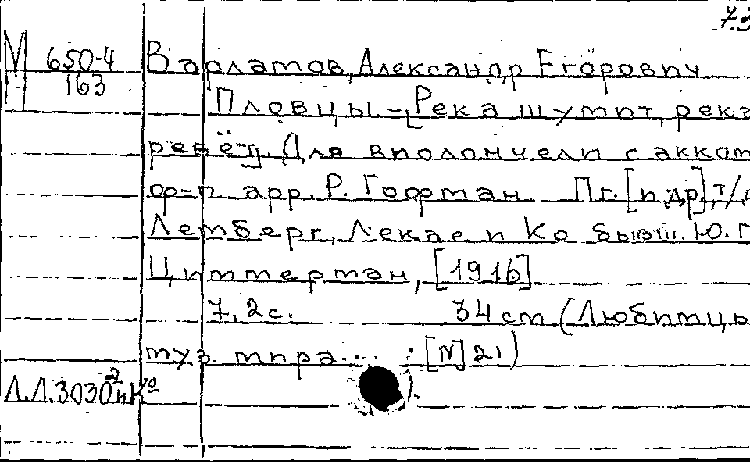 7.3
М 650-4
П 163
Варламов, Александр Егорович
Пловцы. — [Река шумит, река
ревёт]. Для виолончели с аккомп
ф-п. арр. Р. Гофман. Пг. [и др.], т/д
Лемберг, Лекае и Ко бывш. Ю. Г.
Циммерман, [1916]
7, 2 с. 34 см (Любимцы
муз. мира.... [№] 21)
Л.Л. 3030² и К°